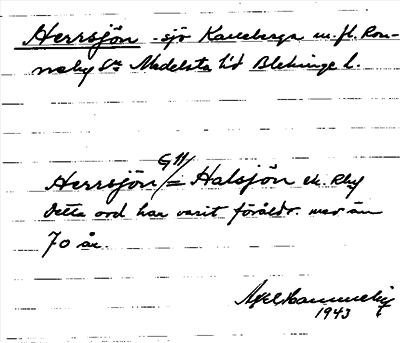 Herrsjön - sjö Kalleberga m.fl. Ron-
neby Sn Medelsta hd Blekinge l.
G 11/
Herrsjön = Halsjön ek. Rby
Detta ord har varit föråldr. mer än
70 år.
1943